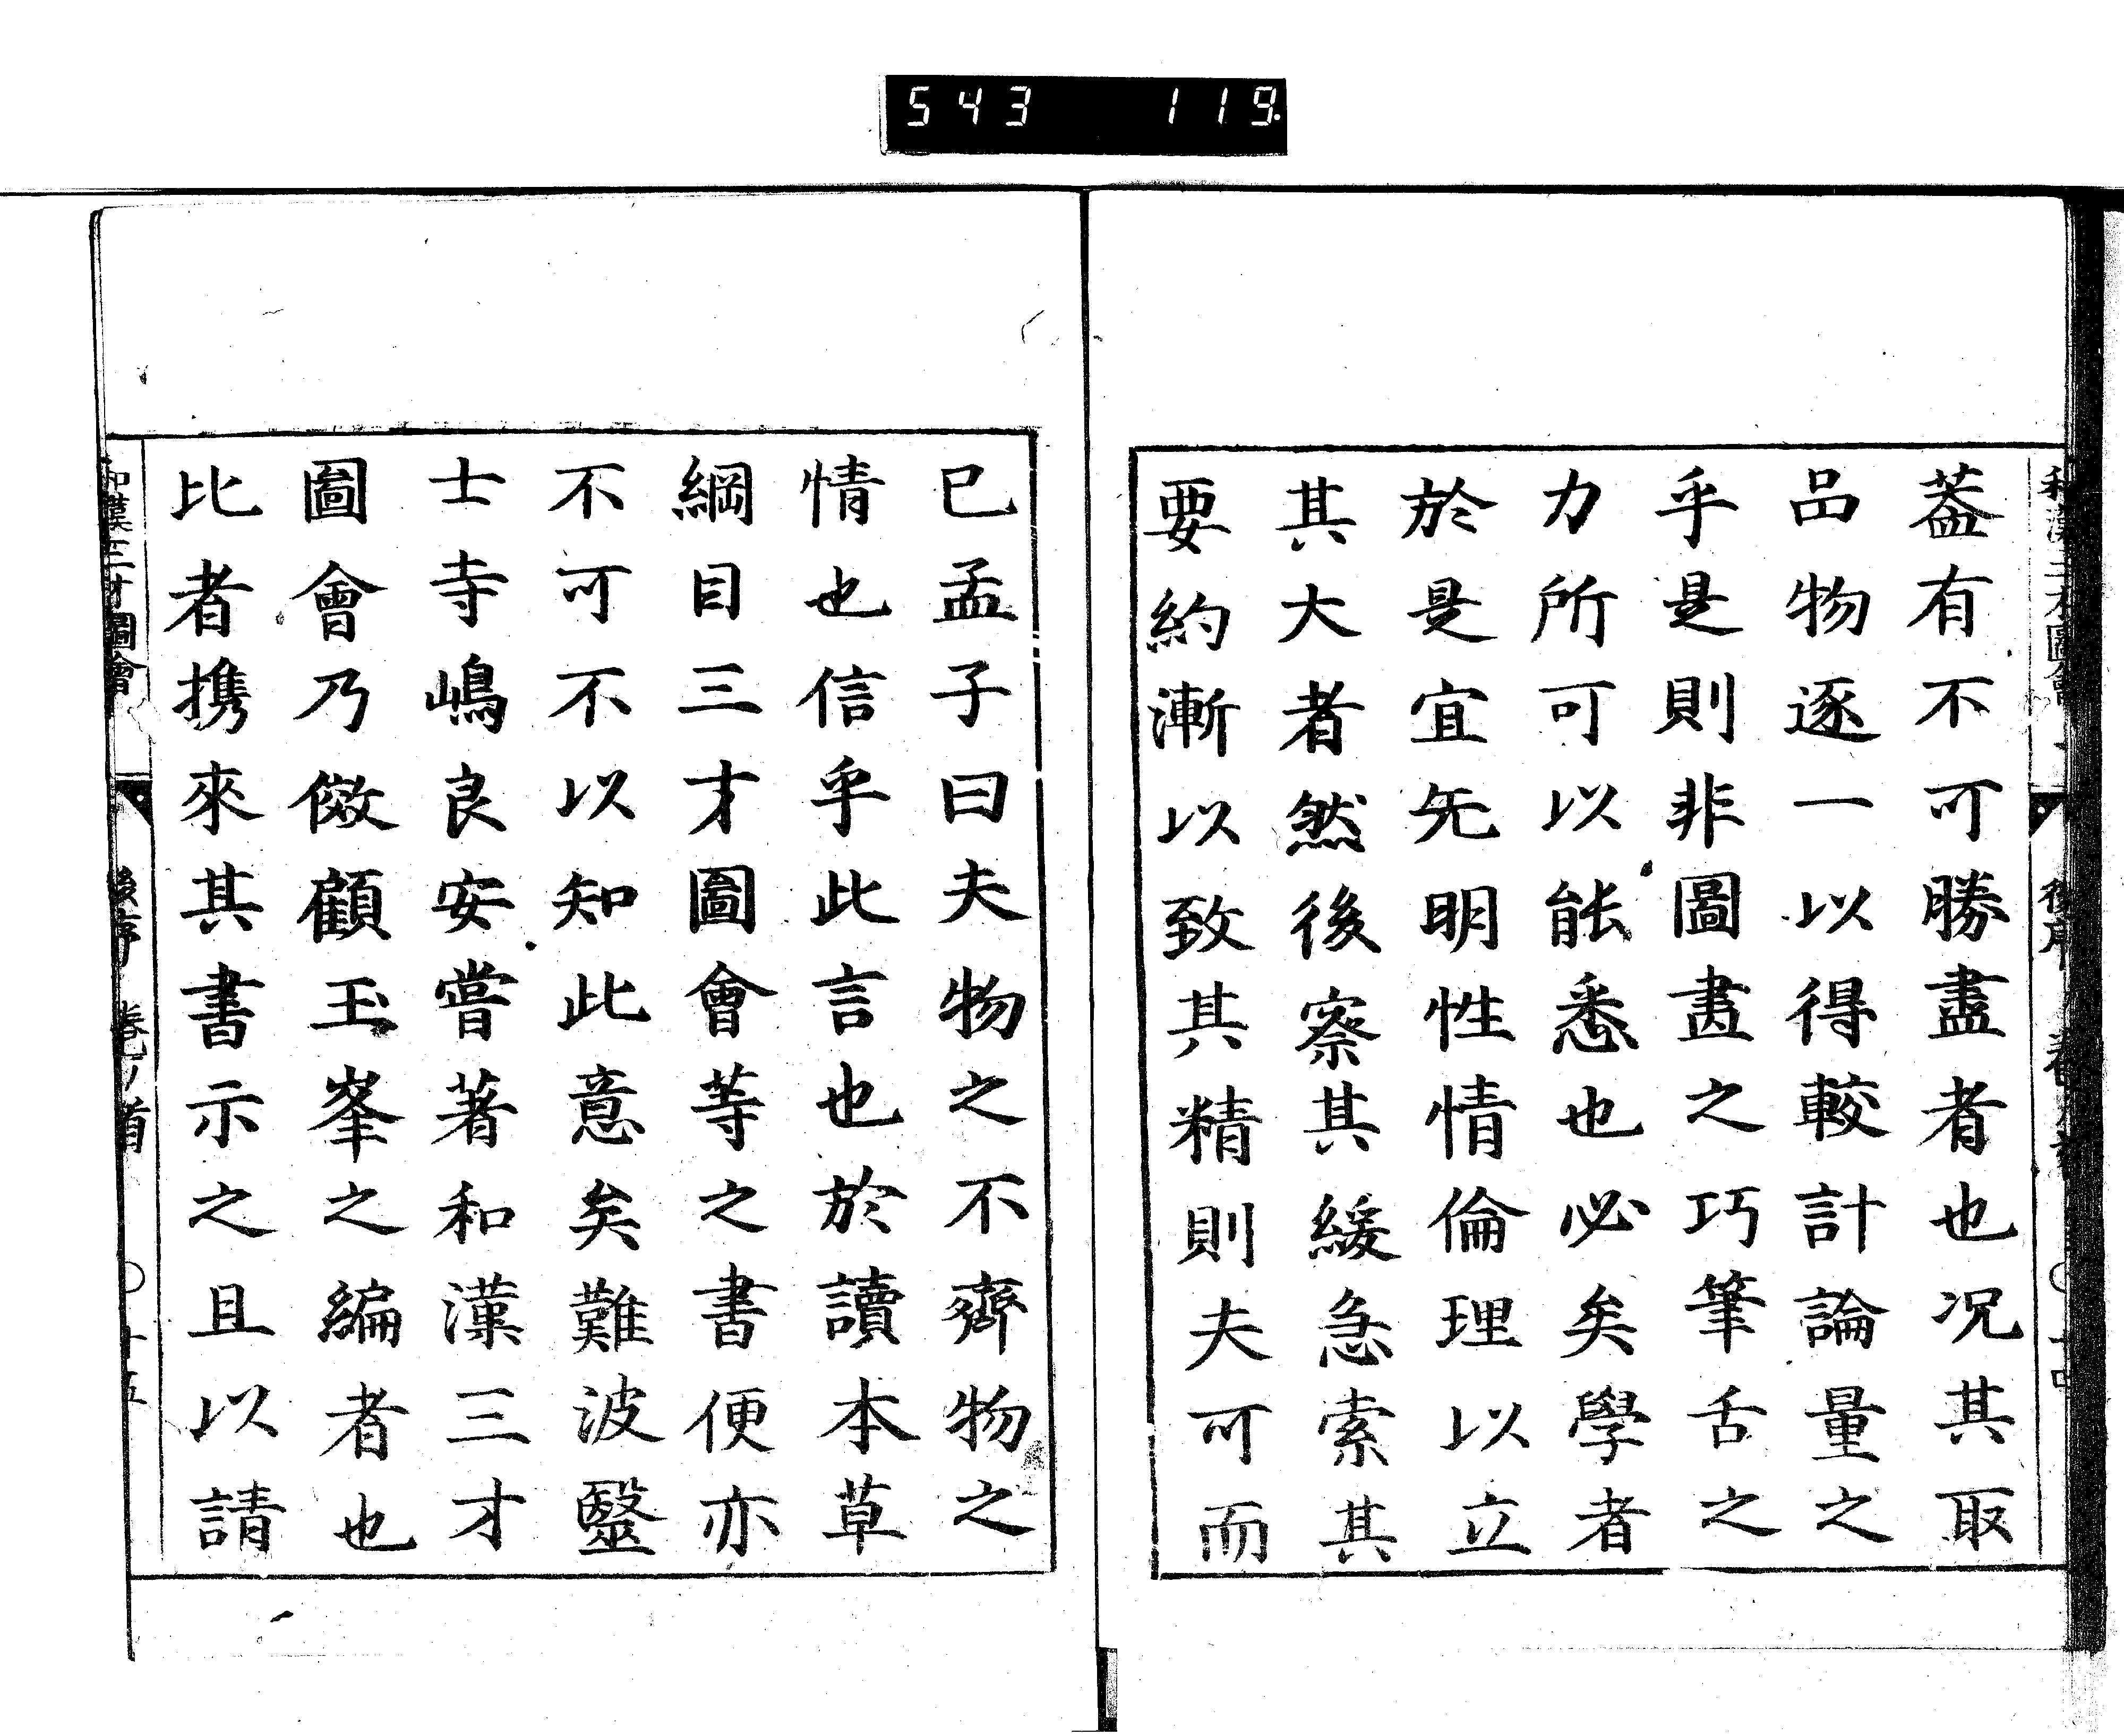 543 119
蓋有不可勝盡者也况其取
品物逐一以得較計論量之
乎是則非圖畫之巧筆舌之
力所可以能悉也必矣學者
於是宜先明性情倫理以立
其大者然後察其緩急索其
要約漸以致其精則夫可而
已孟子曰夫物之不齊物之
情也信乎此言也於讀本草
綱目三才圖會等之書便亦
不可不以知此意矣難波醫
士寺嶋良安嘗著和漢三才
圖會乃倣顧玉峯之編者也
比者携來其書示之且以請
和漢三才圖會 後序 卷ノ首 〇十五